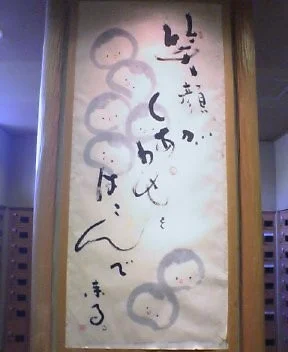 笑顔が
しあわせを
はこんで
来る。